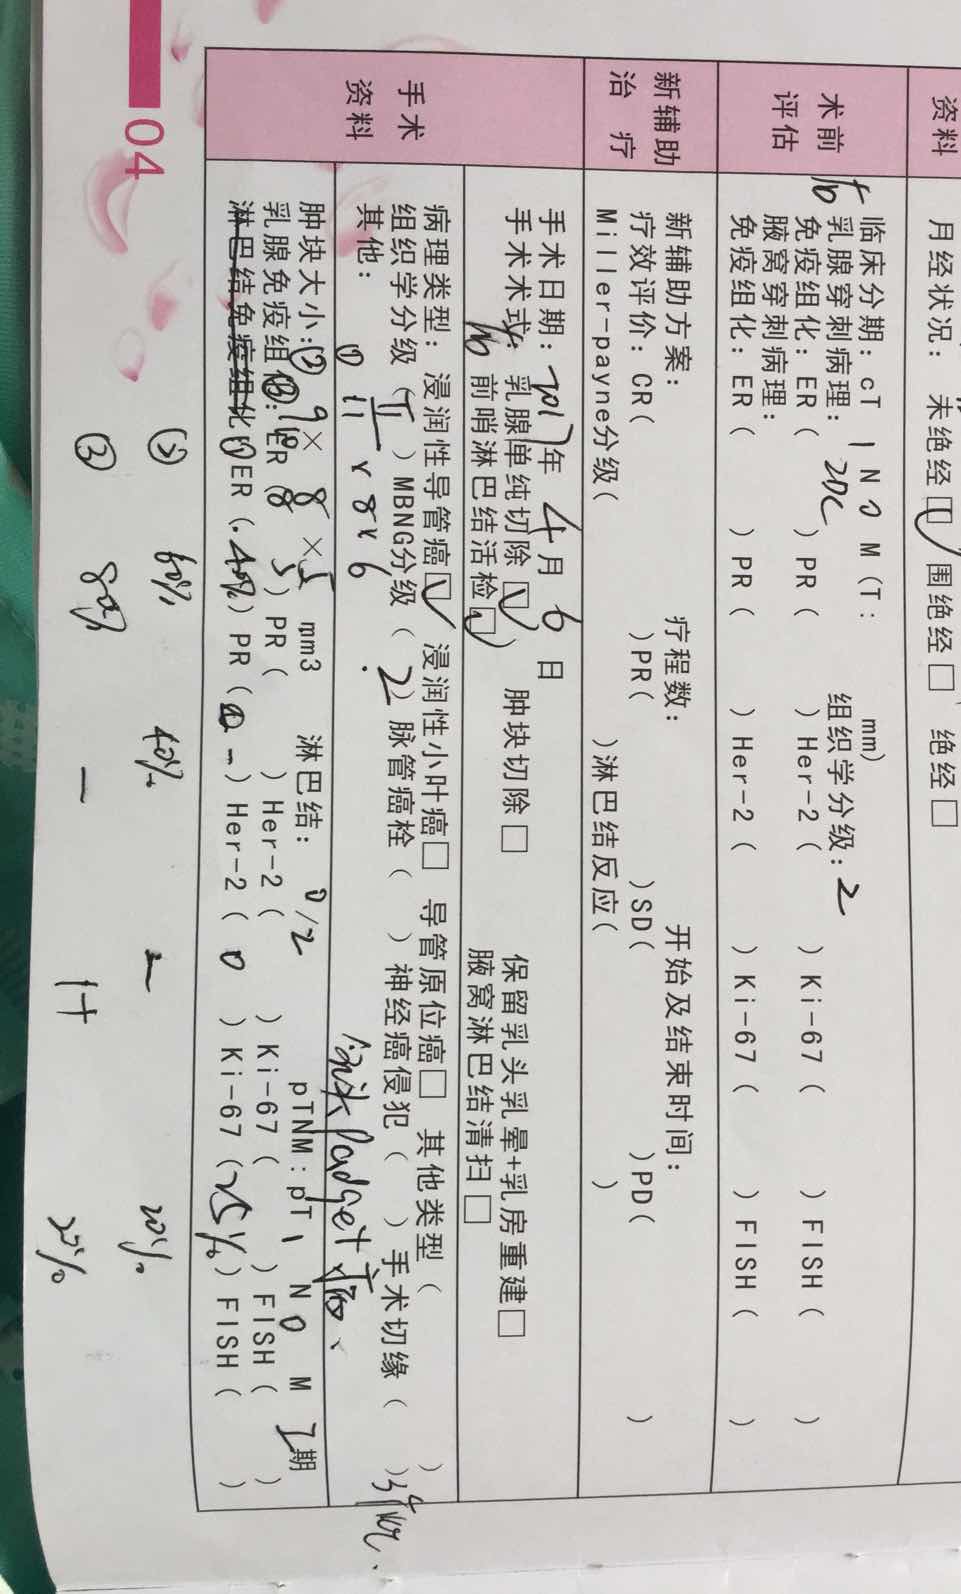 资料
月经状况：未绝经□ 围绝经□ 绝经□
术前评估
临床分期：cT 1 N 0 M（T： mm）
右 乳腺穿刺病理： 组织学分级：2
免疫组化：ER（ ）PR（ ）Her-2（ ）Ki-67（ ）FISH（ ）
腋窝穿刺病理：
免疫组化：ER（ ）PR（ ）Her-2（ ）Ki-67（ ）FISH（ ）
新辅助治疗
新辅助方案： 疗程数： 开始及结束时间：
疗效评价：CR（ ）PR（ ）SD（ ）PD（ ）
Miller-payne分级（ ）淋巴结反应（ ）
手术资料
手术日期：2017年 4月 6日
手术术式：右 乳腺单纯切除□√ 肿块切除□ 保留乳头乳晕+乳房重建□
前哨淋巴结活检□√ 腋窝淋巴结清扫□
病理类型：浸润性导管癌□√ 浸润性小叶癌□ 导管原位癌□ 其他类型（ ）
组织学分级（II）MBNG分级（2）脉管癌栓（ ）神经癌侵犯（ ）手术切缘（ ）
其他： 乳头Paget病.
① 11×8×6
肿块大小：② 9×8×5 mm3 淋巴结：0/2 pTNM：pT 1 N 0 M I期
乳腺免疫组化：ER（ ）PR（ ）Her-2（ ）Ki-67（ ）FISH（ ）
淋巴结免疫组化①ER（40%）PR（-）Her-2（0）Ki-67（25%）FISH（ ）
② 60% 40% - 20%
③ 80% - 1+ 20%
04